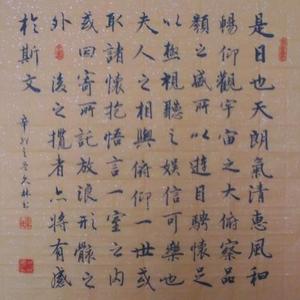 是日也天朗氣清惠風和
暢仰觀宇宙之大俯察品
類之盛所以遊目騁懷足
以極視聽之娛信可樂也
夫人之相與俯仰一世或
取諸懷抱悟言一室之内
或因寄所託放浪形骸之
外後之攬者亦將有感
於斯文
辛卯之